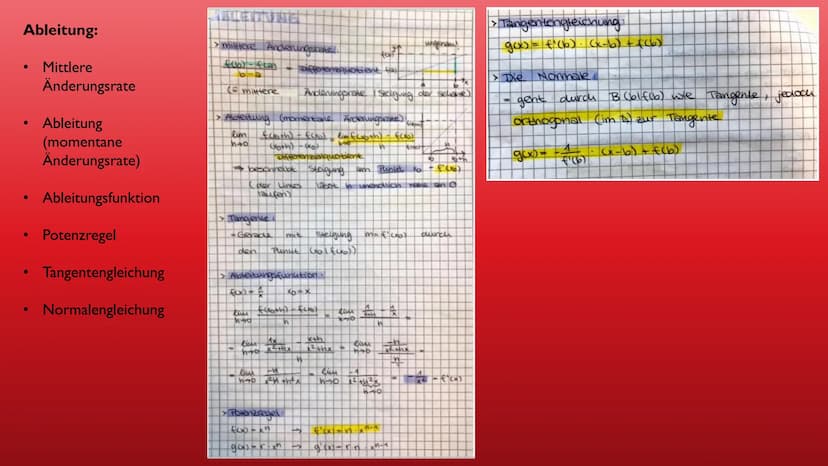 Ableitung:
• Mittlere
Änderungsrate
• Ableitung
(momentane
Änderungsrate)
• Ableitungsfunktion
• Potenzregel
• Tangentengleichung
• Normalengleichung
ABLEITUNG
> mittlere Änderungsrate:
f(b) - f(a) / b - a = Differenzenquotient
(= mittlere Änderungsrate / Steigung der Sekante)
> Ableitung (momentane Änderungsrate)
lim h→0 f(x₀+h) - f(x₀) / (x₀+h) - (x₀) = lim h→0 f(x₀+h) - f(x₀) / h
Differenzialquotient
→ beschreibt Steigung am Punkt x₀ = f'(x₀)
> Tangente:
= Gerade mit Steigung m = f'(x₀) durch
den Punkt (x₀|f(x₀))
> Ableitungsfunktion:
f(x) = 1/x x₀ = x
lim h→0 f(x₀+h) - f(x₀) / h
= - 1/x² = f'(x)
> Potenzregel
f(x) = xⁿ → f'(x) = n · xⁿ⁻¹
g(x) = r · xⁿ → g'(x) = r · n · xⁿ⁻¹
> Tangentengleichung:
g(x) = f'(b) · (x-b) + f(b)
> Die Normale:
= geht durch B (b|f(b)) wie Tangente, jedoch
orthogonal (im 90°) zur Tangente
g(x) = - 1/f'(b) · (x-b) + f(b)